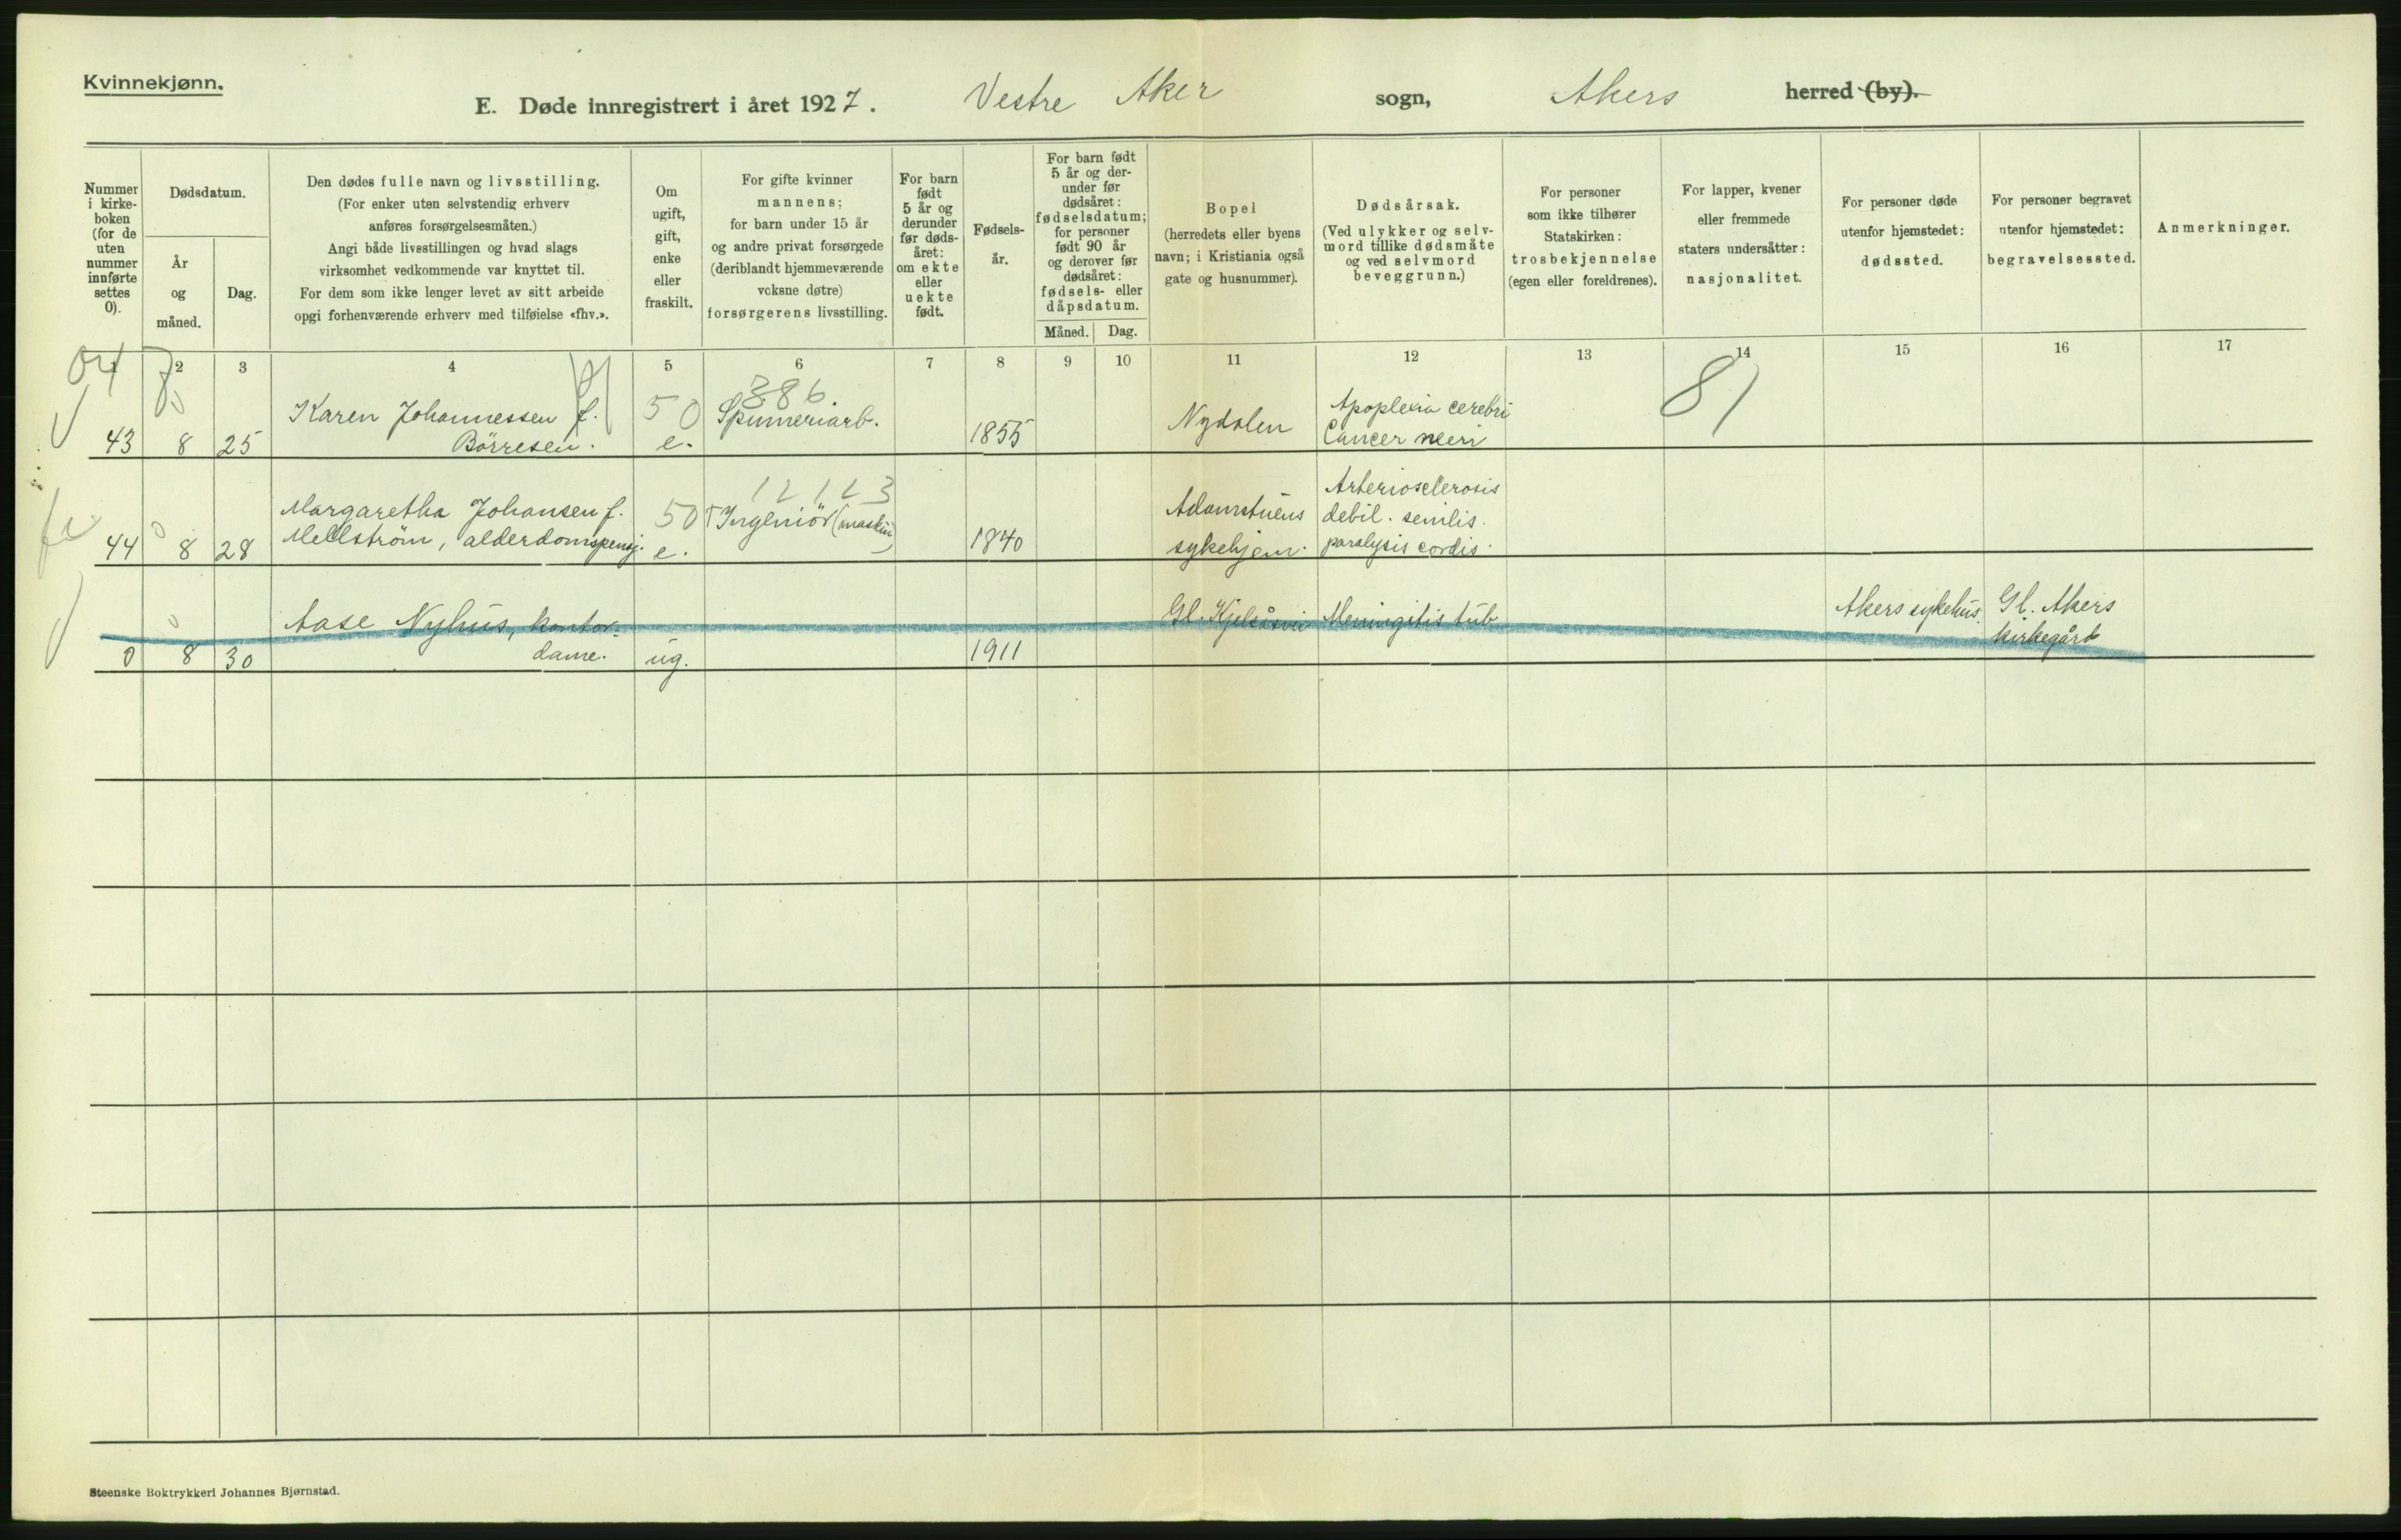 Kvinnekjønn.
E. Døde innregistrert i året 1927. Vestre Aker sogn, Akers herred (by).
Nummer
i kirke-
boken
(for de
uten
nummer
innførte
settes
0).
Dødsdatum.
År
og
måned.
Dag.
Den dødes fulle navn og livsstilling.
(For enker uten selvstendig erhverv
anføres forsørgelsesmåten.)
Angi både livsstillingen og hvad slags
virksomhet vedkommende var knyttet til.
For dem som ikke lenger levet av sitt arbeide
opgi forhenværende erhverv med tilføielse «fhv.».
Om
ugift,
gift,
enke
eller
fraskilt.
For gifte kvinner
mannens;
for barn under 15 år
og andre privat forsørgede
(deriblandt hjemmeværende
vcksne døtre)
forsørgerens livsstilling.
For barn
født
5 år og
derunder
før døds-
året:
om ekte
eller
uekte
født.
Fødsels-
år.
For barn født
5 år og der-
under før
dødsåret:
fødselsdatum;
for personer
født 90 år
og derover før
dødsåret:
fødsels- eller
dåpsdatum.
Måned. Dag.
Bopel
(herredets eller byens
navn; i Kristiania også
gate og husnummer).
Dødsårsak.
(Ved ulykker og selv-
mord tillike dødsmåte
og ved selvmord
beveggrunn.)
For personer
som ikke tilhører
Statskirken:
trosbekjennelse
(egen eller foreldrenes).
For lapper, kvener
eller fremmede
staters undersåtter:
nasjonalitet.
For personer døde
utenfor hjemstedet:
dødssted.
For personer begravet
utenfor hjemstedet:
begravelsessted.
Anmerkninger.
1 2 3 4 5 6 7 8 9 10 11 12 13 14 15 16 17
04 81
43 8 25
Karen Johannessen f.
Börresen.
50
e.
386
Spinneriarb.
1855
Nydalen
Apoplexia cerebri
Cancer uteri
44 8 28
Margaretha Johansen f.
Mellström, alderdomspensj.
50
e.
12123
Ingeniör (maskin)
1840
Adamstuens
sykehjem.
Arteriosclerosis
debil. senilis.
paralysis cordis.
0 8 30
Aase Nyhus, kontor-
dame.
ug.
1911
Gl. Kjelsåsvei
Meningitis tub.
Akers sykehus.
Gl. Akers
kirkegård
Steenske Boktrykkeri Johannes Bjørnstad.